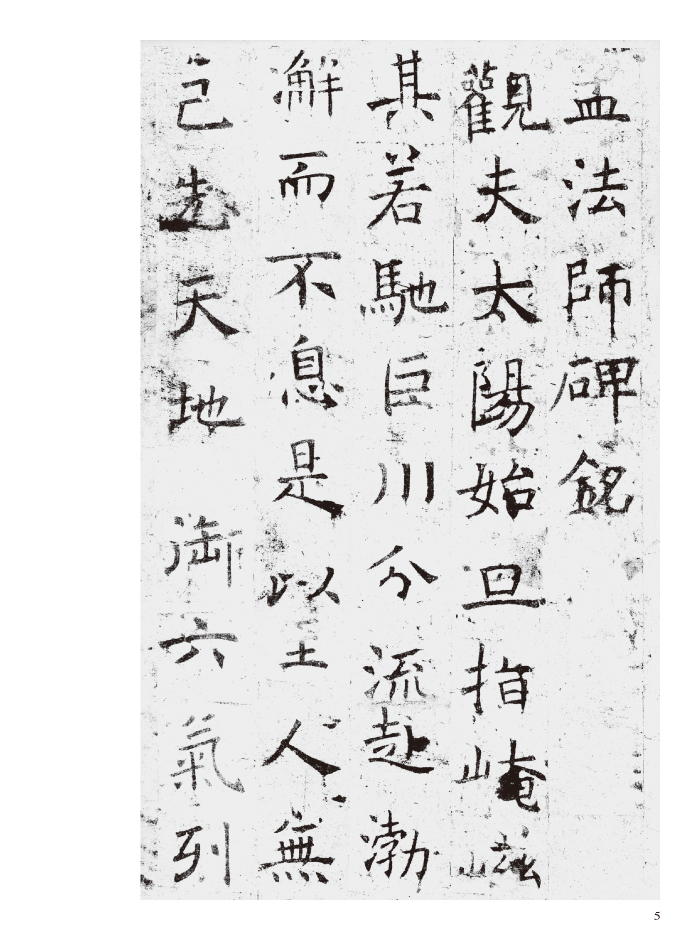 孟法師碑銘
觀夫太陽始旦指崦嵫
其若馳巨川分流赴渤
澥而不息是以至人無
己先天地御六氣列
5